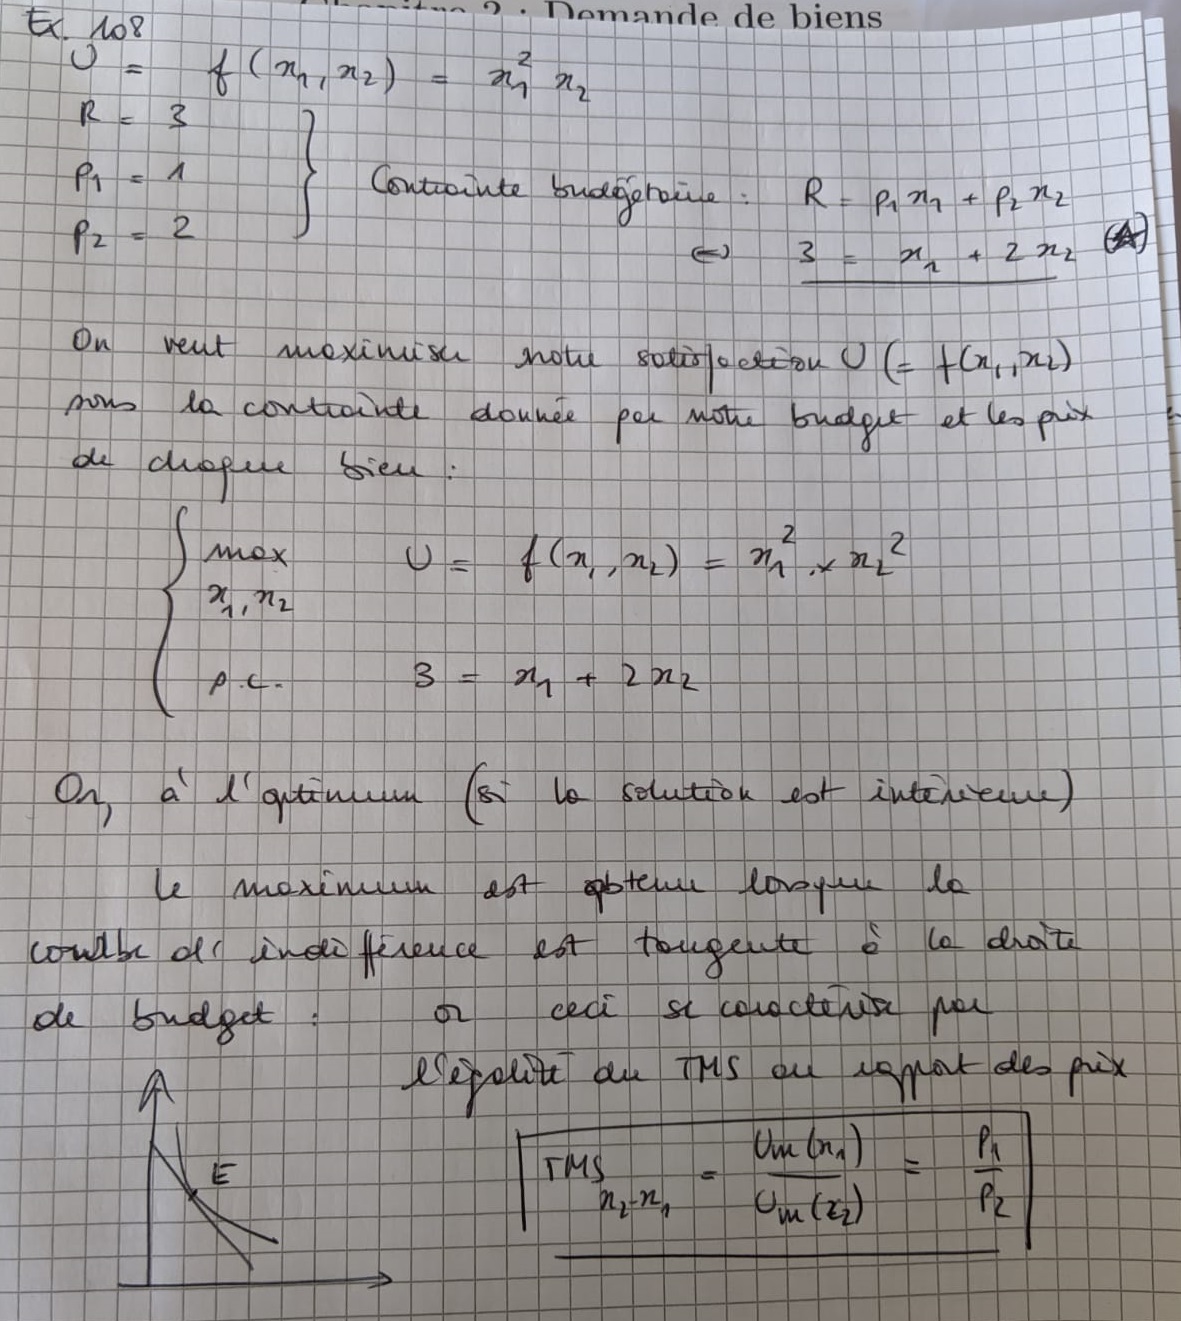 : Demande de biens
Ex. 108
U = f(x1, x2) = x1² x2
R = 3
P1 = 1
Contrainte budgétaire : R = P1 x1 + P2 x2
P2 = 2
⇔ 3 = x1 + 2 x2
On veut maximiser notre satisfaction U (= f(x1, x2)
sous la contrainte donnée par notre budget et les prix
de chaque bien :
max U = f(x1, x2) = x1² × x2²
x1, x2
s.c. 3 = x1 + 2 x2
Or, à l'optimum (si la solution est intérieure)
le maximum est obtenu lorsque la
courbe d'indifférence est tangente à la droite
de budget : or ceci se caractérise par
l'égalité du TMS au rapport des prix
E
TMS x2-x1 = Um(x1) / Um(x2) = P1 / P2